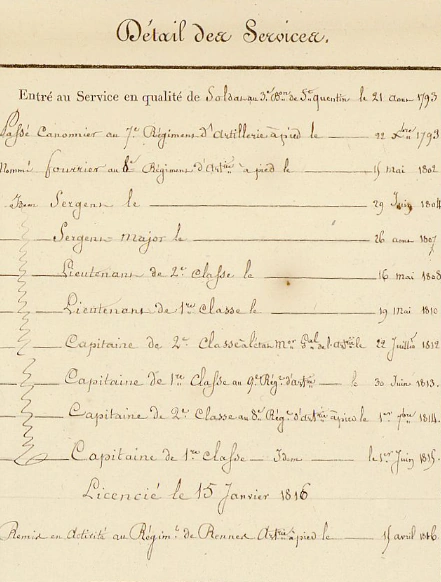 Détail des Services.
Entré au Service en qualité de Soldat au 3e. Bon. de St. quentin le 21 aout 1793
Passé Canonnier au 7e Régiment d'Artillerie à pied le 22 1793
Nommé fourrier au 8e Régiment d'Artrie à pied le 15 mai 1802
Idem Sergent le 29 Juin 1804
Sergent Major le 26 aout 1807
Lieutenant de 2e Classe le 16 mai 1808
Lieutenant de 1re Classe le 19 mai 1810
Capitaine de 2e Classe à l'état Mor. Gal de l'artie le 22 Juillet 1812
Capitaine de 1re Classe au 9e Régt d'artie le 30 Juin 1813.
Capitaine de 2e Classe au 8e Régt d'Artrie à pied le 1er 7bre 1814.
Capitaine de 1re Classe Idem le 1er Juin 1815.
Licencié le 15 Janvier 1816
Remis en Activité au Régimt de Rennes Artrie à pied le 15 avril 1816.